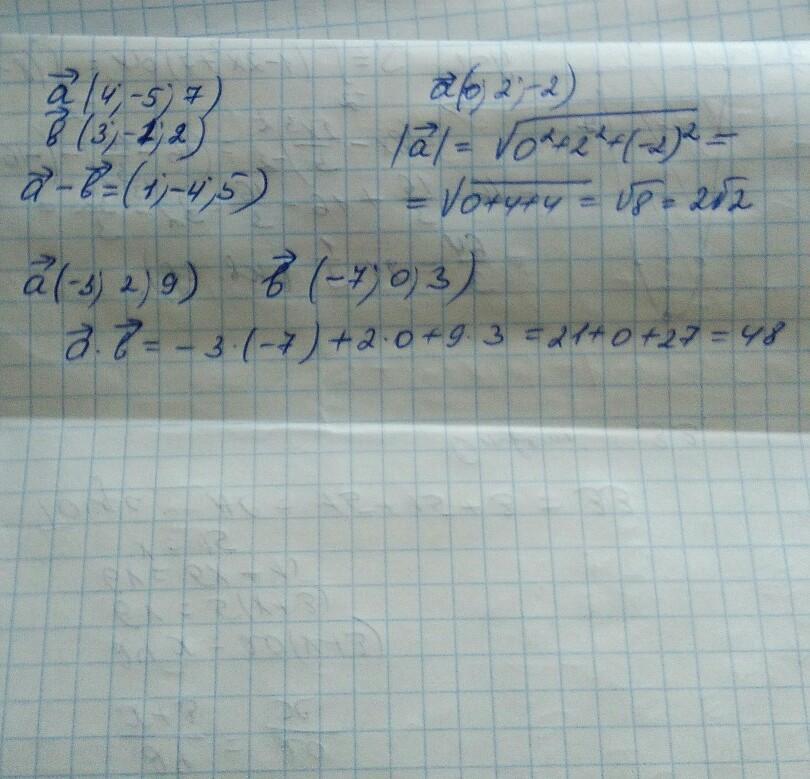 a⃗ (4; -5; 7)
b⃗ (3; -1; 2)
a⃗ - b⃗ = (1; -4; 5)
a⃗ (0; 2; -2)
|a⃗| = √(0²+2²+(-2)²) =
= √(0+4+4) = √8 = 2√2
a⃗ (-3; 2; 9) b⃗ (-7; 0; 3)
a⃗ · b⃗ = -3·(-7)+2·0+9·3 = 21+0+27 = 48